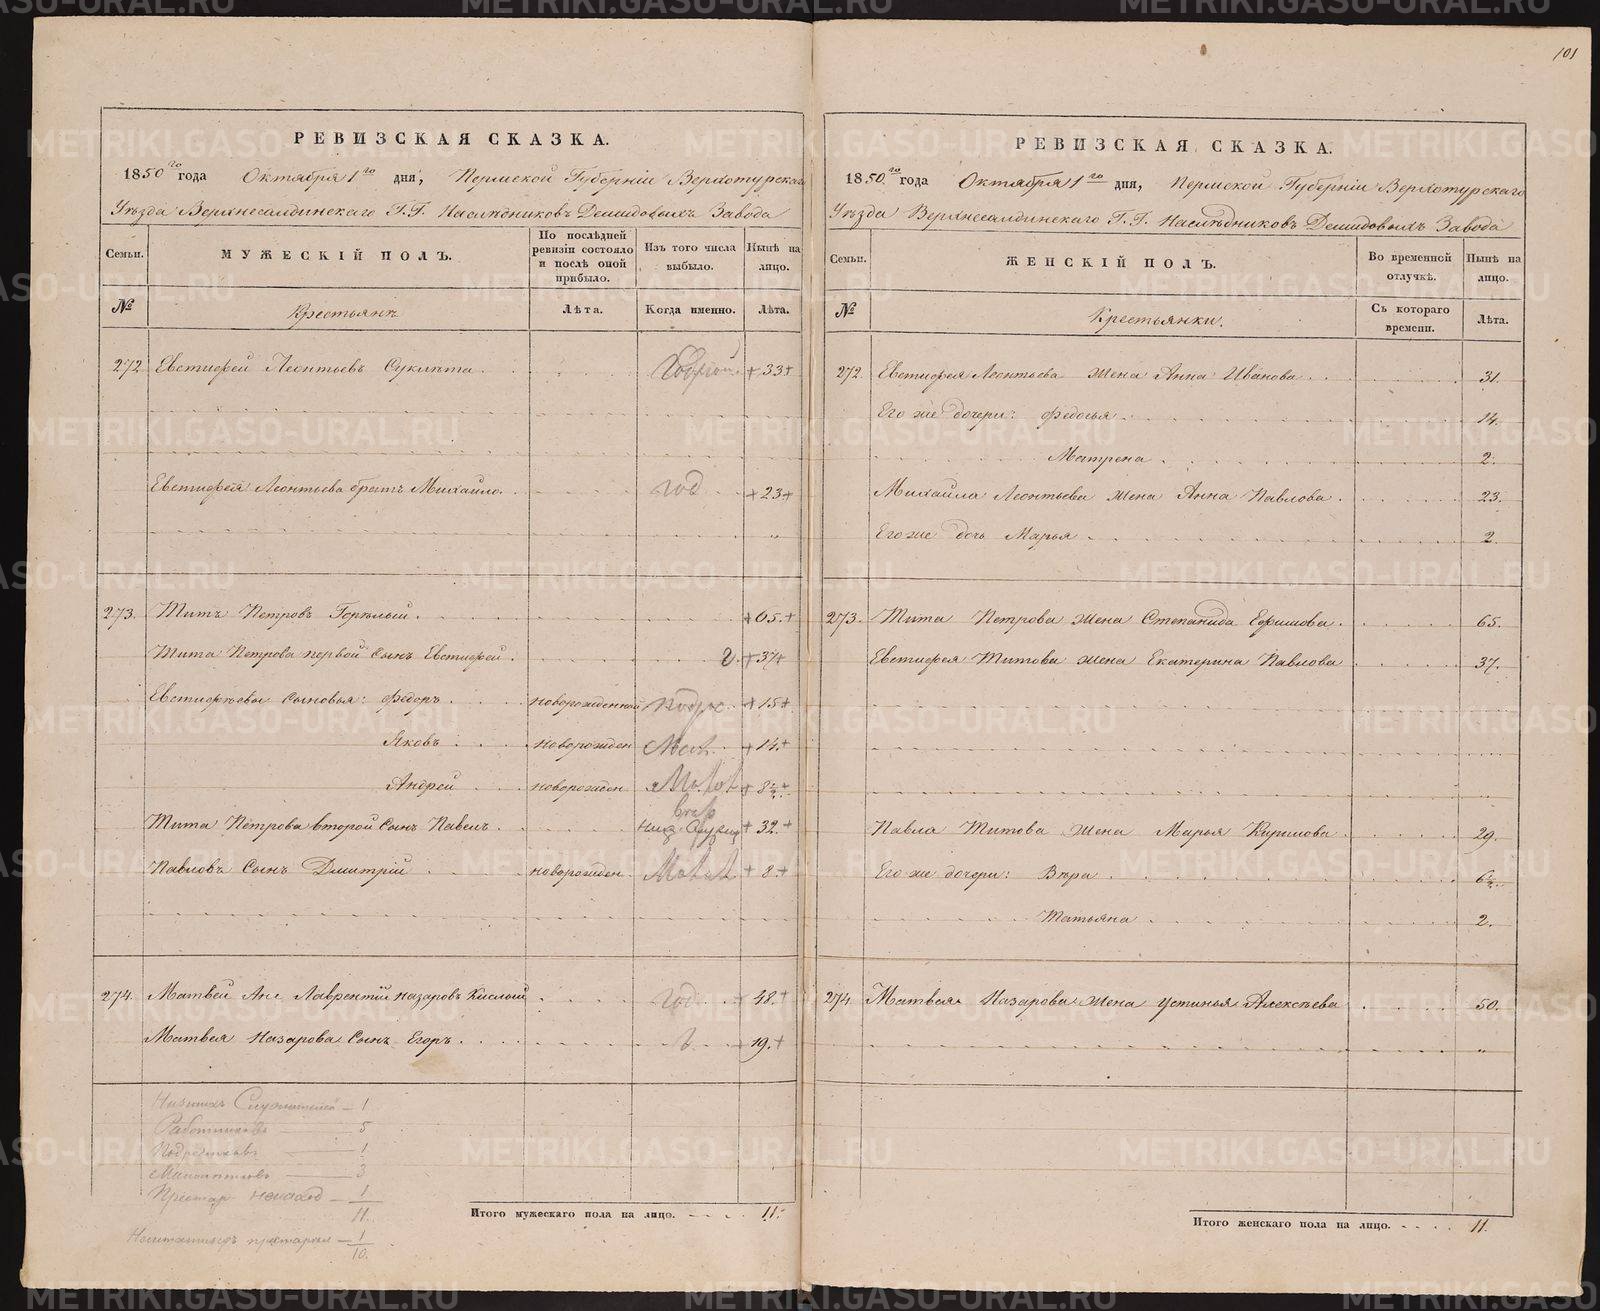 101
РЕВИЗСКАЯ СКАЗКА.
1850го года Октября 1го дня, Пермской Губерніи Верхотурскаго
Уѣзда Верхнесалдинскаго Г.Г. Наслѣдниковъ Демидовыхъ Завода
Семьи. МУЖЕСКІЙ ПОЛЪ. По послѣдней ревизіи состояло и послѣ оной прибыло. Изъ того числа выбыло. Нынѣ на лицо.
№ Крестьянъ Лѣта. Когда именно. Лѣта.
272 Евстифей Леонтьевъ годной + 33 +
Евстифея Леонтьева братъ Михайло. год + 23 +
273. Титъ Петровъ Горѣлый. + 65. +
Тита Петрова первой сынъ Евстифей. г. + 37 +
Евстифѣевы сыновья: Федоръ новорожденной подрос. + 15 +
Яковъ новорожден + 14. +
Андрей новорожден Малол + 8½ +
Тита Петрова второй сынъ Павелъ. + 32. +
Павловъ сынъ Дмитрій новорожден. Малол + 8. +
274. Матвей Лаврентій Назаровъ Кислый год. 48. +
Матвея Назарова сынъ Егоръ. 19. +
Низшихъ Служителей — 1
Работниковъ — 5
Подростковъ — 1
Малолѣтковъ — 3
Престар — 1
11.
— 1
10.
Итого мужескаго пола на лицо. 11.
РЕВИЗСКАЯ СКАЗКА.
1850го года Октября 1го дня, Пермской Губерніи Верхотурскаго
Уѣзда Верхнесалдинскаго Г.Г. Наслѣдниковъ Демидовыхъ Завода
Семьи. ЖЕНСКІЙ ПОЛЪ. Во временной отлучкѣ. Нынѣ на лицо.
№ Крестьянки. Съ котораго времени. Лѣта.
272. Евстифея Леонтьева жена Анна Иванова 31.
Его же дочери: Федосья 14.
Матрена 2.
Михайла Леонтьева жена Анна Павлова 23.
Его же дочь Марья 2
273. Тита Петрова жена Степанида Ефимова 65.
Евстифея Титова жена Екатерина Павлова 37.
Павла Титова жена Марья Кирилова 29.
Его же дочери: Вѣра 6½
Татьяна 2.
274. Матвея Назарова жена Устинья Алексѣева 50.
Итого женскаго пола на лицо. 11.
METRIKI.GASO-URAL.RU